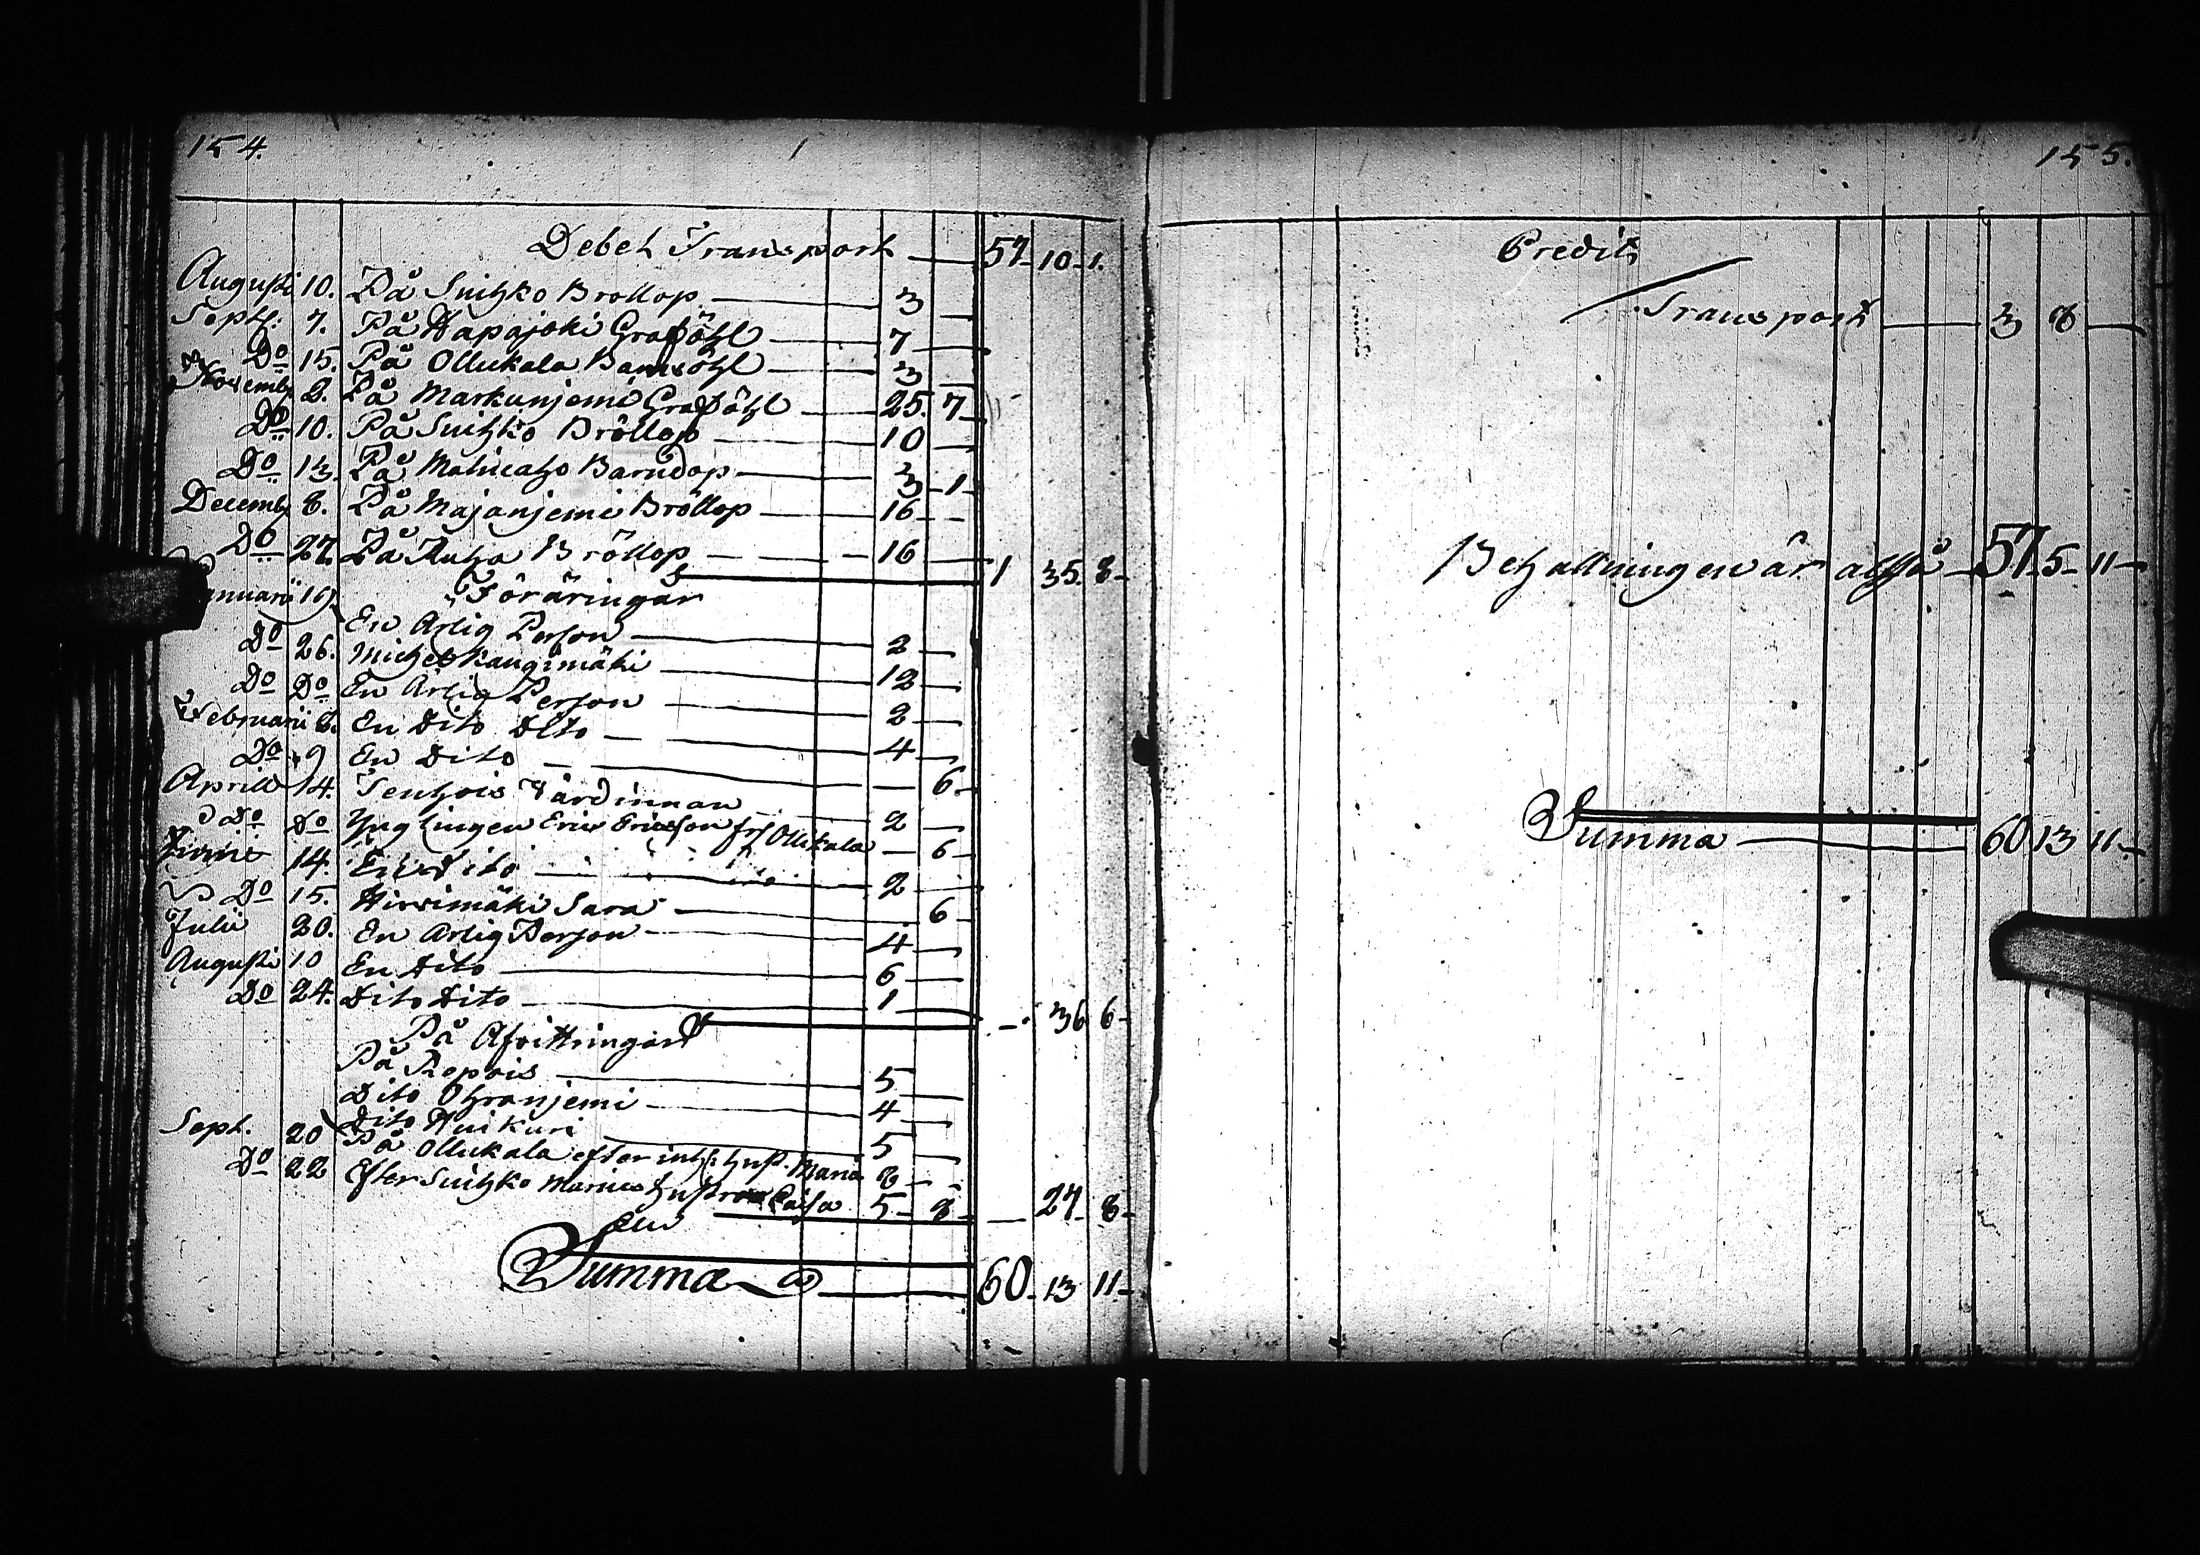 154.
Debet Transport — 57 - 10 - 1.
Augusti 10. På Snihko Brollop — 3 —
Septr: 7. På Hapajoki Grafööhl — 7 —
Do 15. På Ollukala Barnsöhl — 3 —
Novemb. 2. På Markunjemi Graföhl — 25. 7 -
Do 10. På Snihko Bröllop — 10 —
Do 13. På Barndop — 3 - 1 -
Decemb. 8. På Majanjemi Bröllop — 16 - -
Do 27. På Bröllop — 16 — 1 35. 8 -
Föräringar
anuarii 19. En Ärlig Person — 2 —
Do 26. Michel Kangimäki — 12 —
Do Do En Ärlig Person — 2 —
Februarii 8. En Dito Dito — 4 —
Do 9 En Dito — 6 -
Aprill 14. Värdinnan — 2 —
Do Do Ynglingen Eric Ericsson frf Ollikala — 6 -
14. En Dito — 2 —
Do 15. Hirvimäki Sara — 6 -
Julii 20. En Ärlig Person — 4 —
Augusti 10 En Dito — 6 —
Do 24. Dito Dito — 1 — - 36 6 -
På Afvittringar
På — 5 —
Dito Ohranjemi — 4 —
Dito Huikuri — 5 —
Sept. 20 På Ollukala efter inh: hust. Maria 8 - -
Do 22 Efter Snihko hustru Caisa 5 - 8 - — 27 - 8 -
Summa — 60 - 13 11 -
155.
Credit
Transport — 3 8 —
Behallningen är altså — 57 - 5 - 11 —
Summa — 60 13 11 -